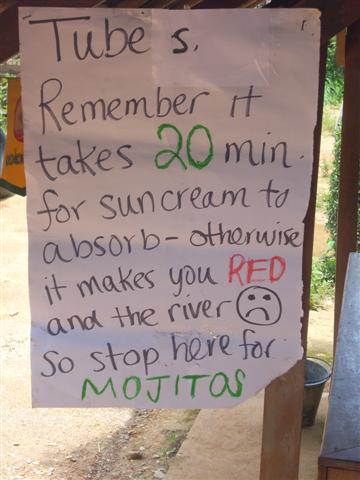 Tube s.
Remember it
takes 20 min.
for suncream to
absorb - otherwise
it makes you RED
and the river
So stop here for
MOJITOS